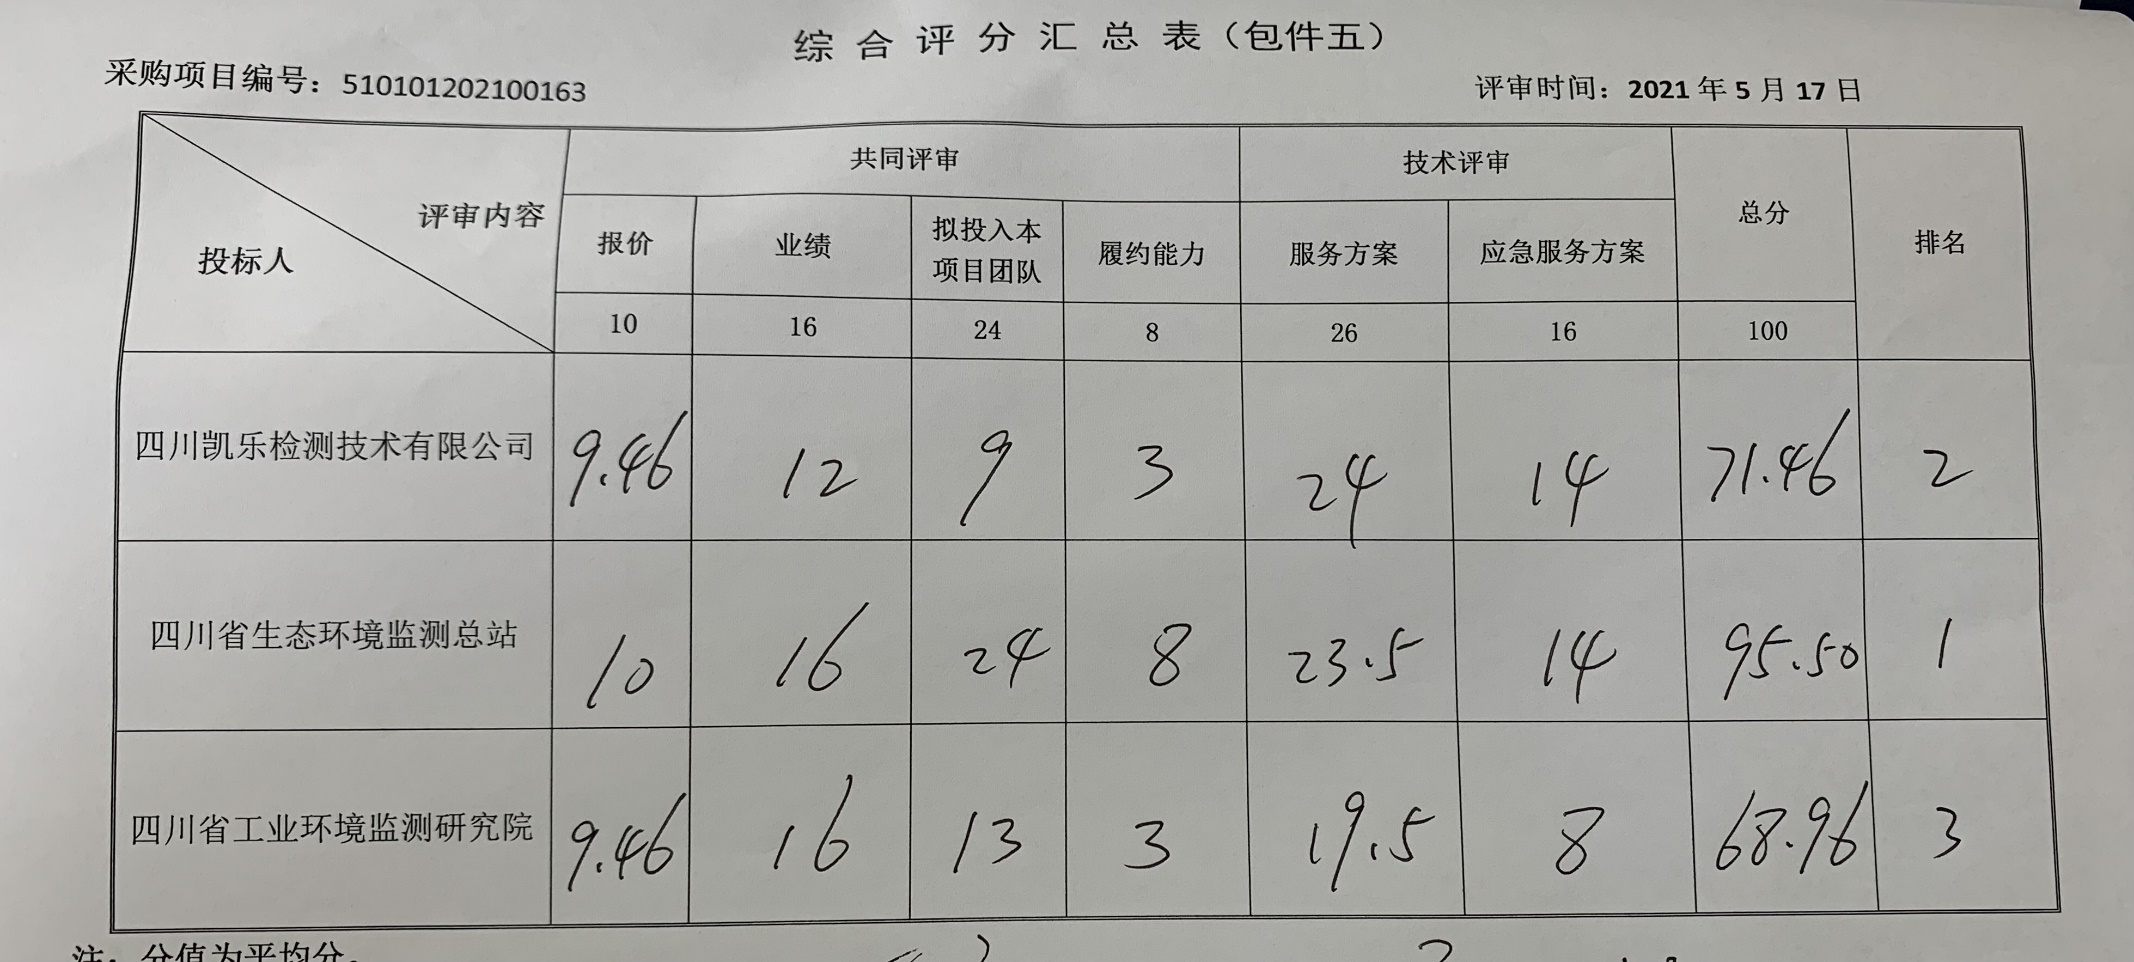 综合评分汇总表（包件五）
采购项目编号：510101202100163 评审时间：2021年5月17日
评审内容 投标人 共同评审 技术评审 总分 排名
报价 业绩 拟投入本项目团队 履约能力 服务方案 应急服务方案
10 16 24 8 26 16 100
四川凯乐检测技术有限公司 9.46 12 9 3 24 14 71.46 2
四川省生态环境监测总站 10 16 24 8 23.5 14 95.50 1
四川省工业环境监测研究院 9.46 16 13 3 19.5 8 68.96 3
注：分值为平均分。